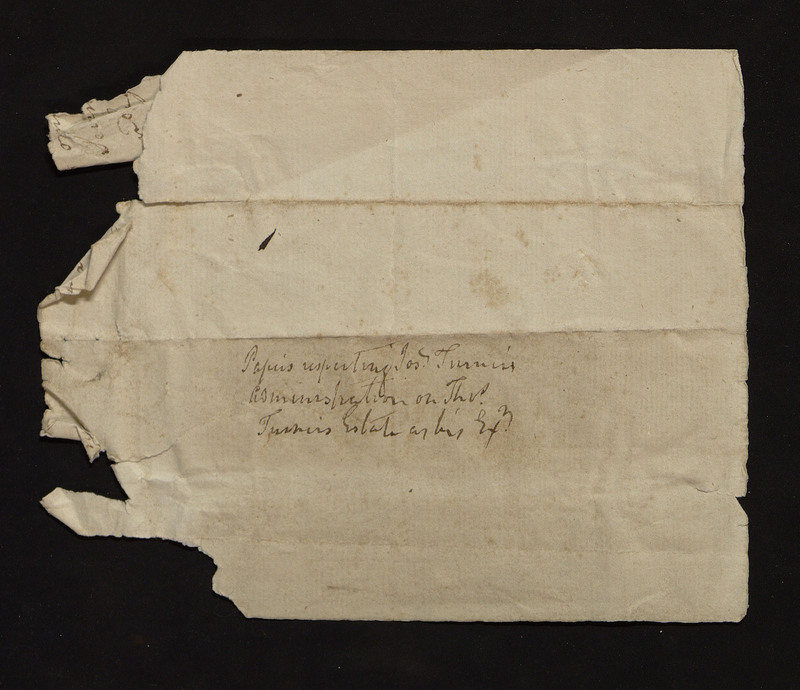 Papers respecting Jos? Turner's
administration on Tho.s
Turners Estate as his Ex.r